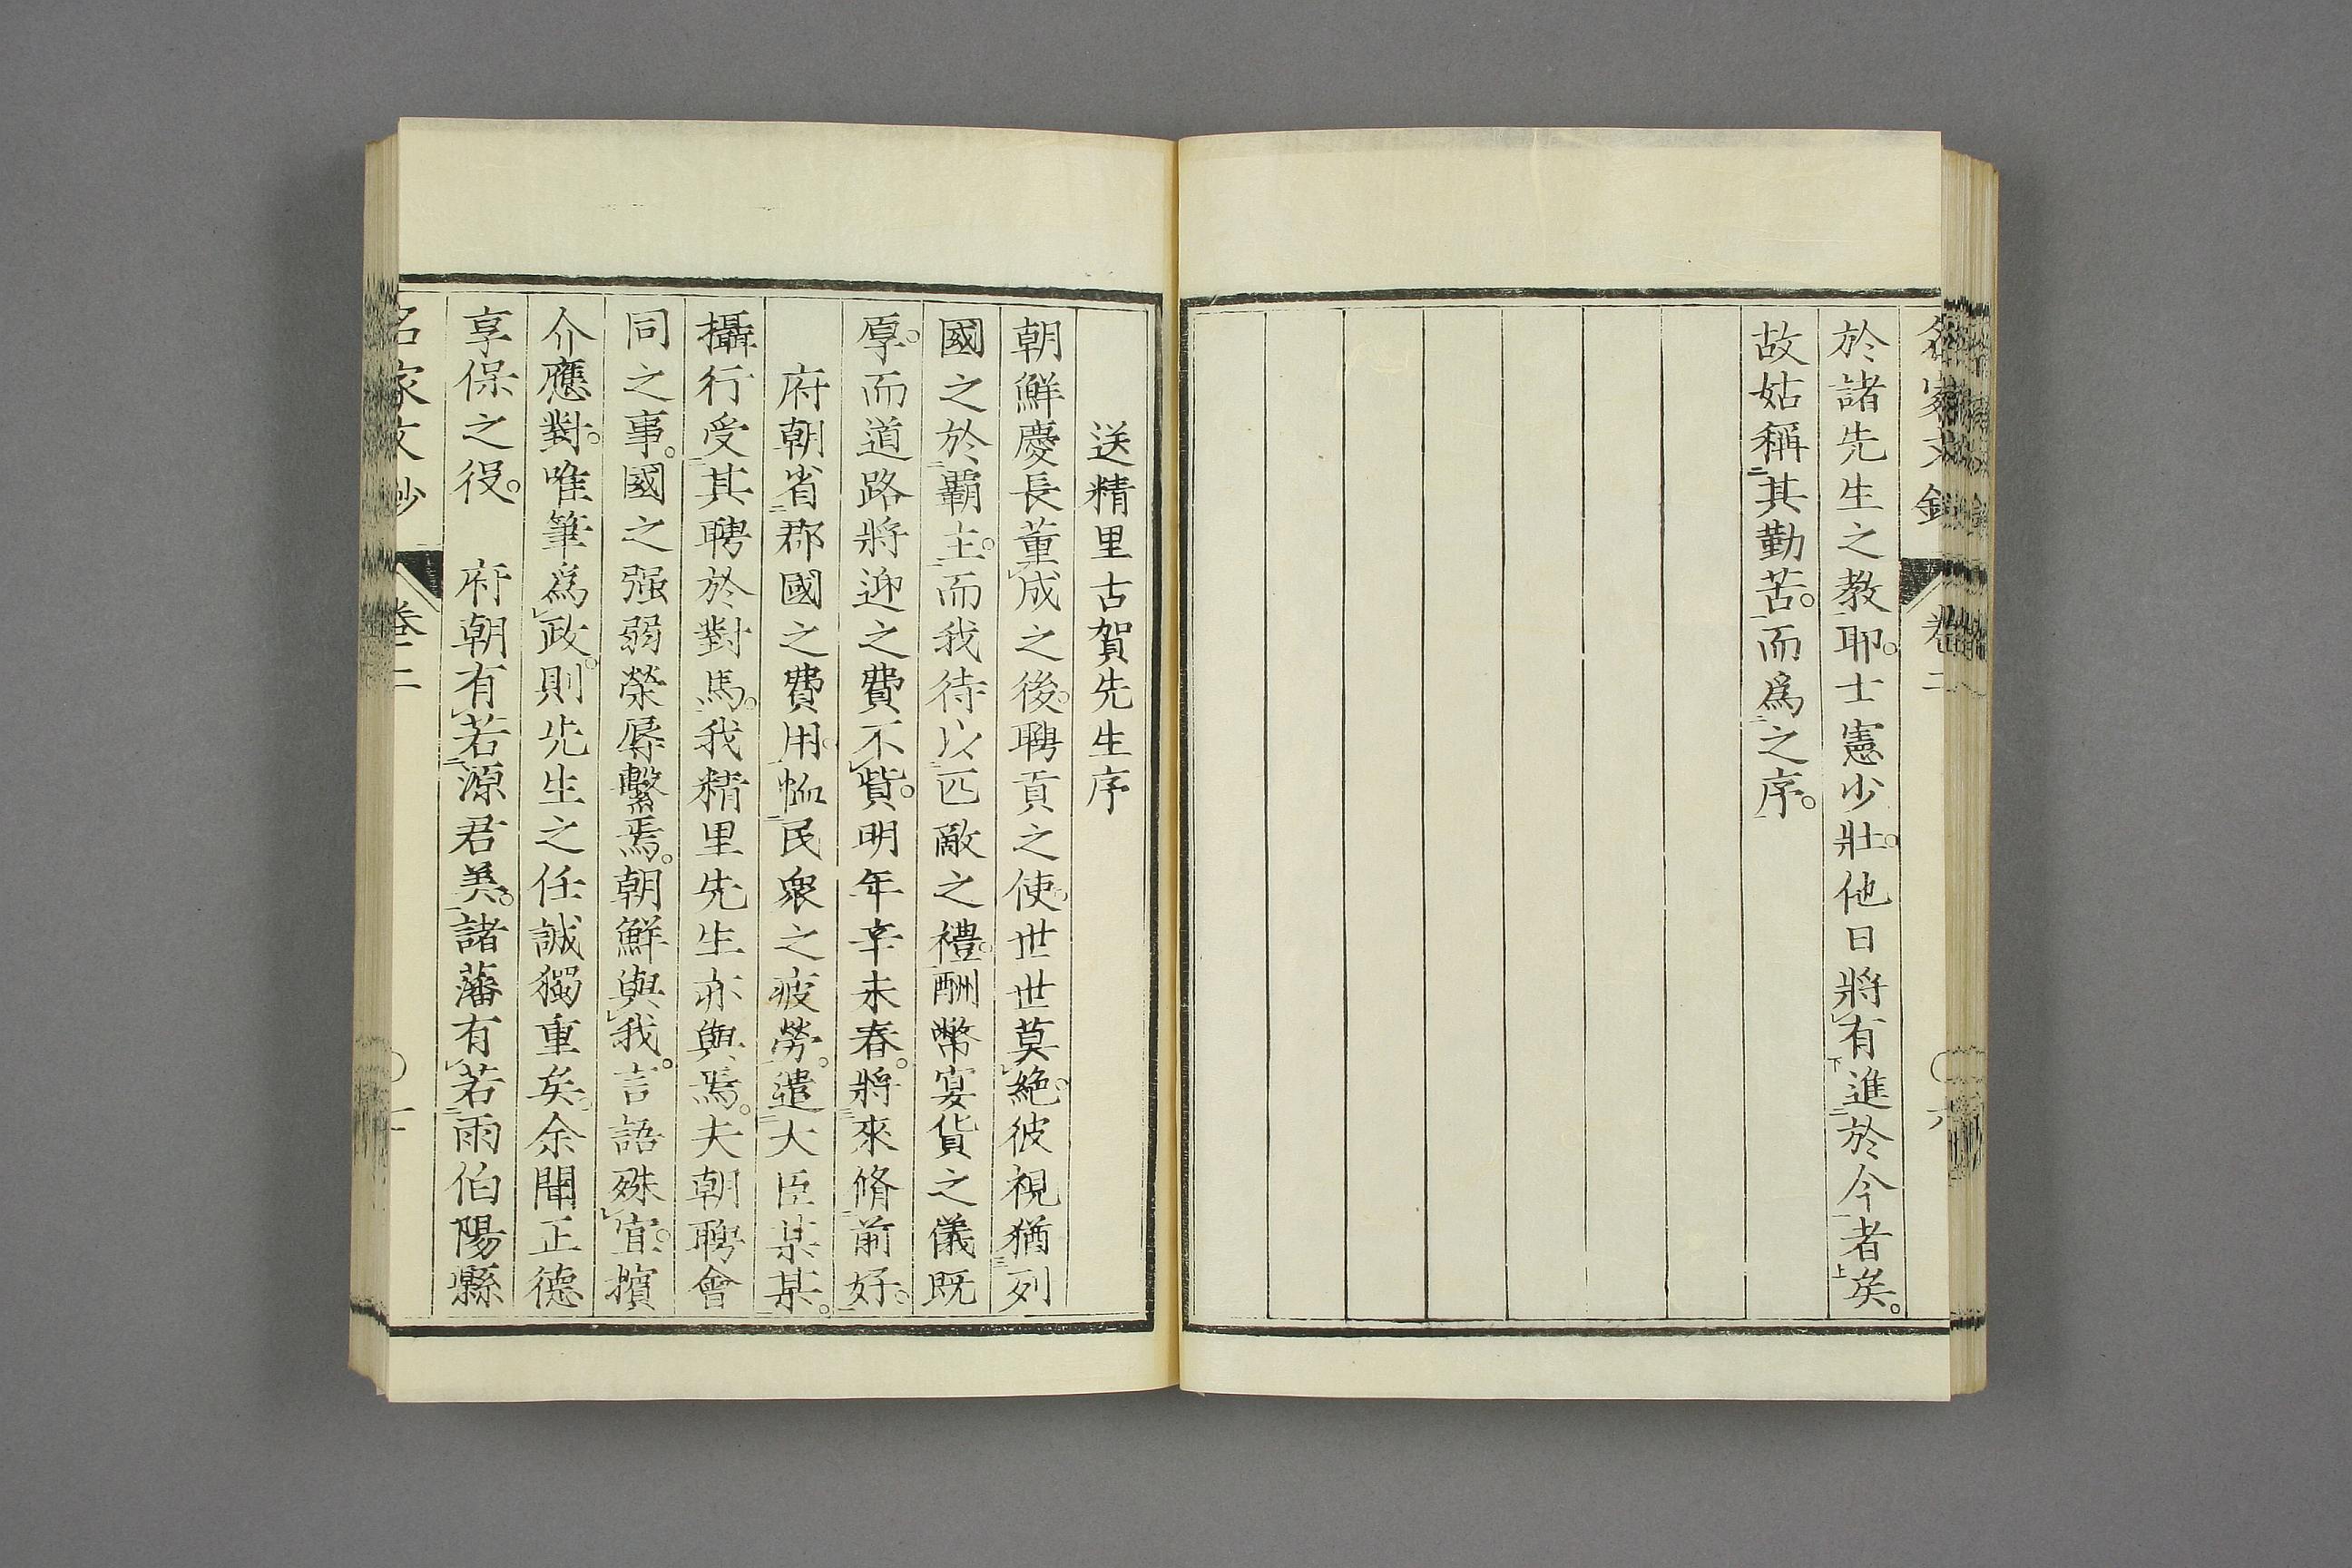 於諸先生之教耶。士憲少壯。他日將有進於今者矣。
故姑稱其勤苦。而爲之序。
送精里古賀先生序
朝鮮慶長董成之後。聘貢之使。世世莫絶。彼視猶列
國之於覇主。而我待以匹敵之禮。酬幣宴貨之儀既
厚。而道路將迎之費不貲。明年辛未春。將來脩前好。
府朝省郡國之費用。恤民衆之疲勞。遣大臣某某。
攝行受其聘於對馬。我精里先生亦與焉。夫朝聘會
同之事。國之强弱榮辱繫焉。朝鮮與我。言語殊宜。擯
介應對。唯筆爲政。則先生之任誠獨重矣。余聞正德
享保之役。 府朝有若源君美。諸藩有若雨伯陽縣
名家文抄 卷二